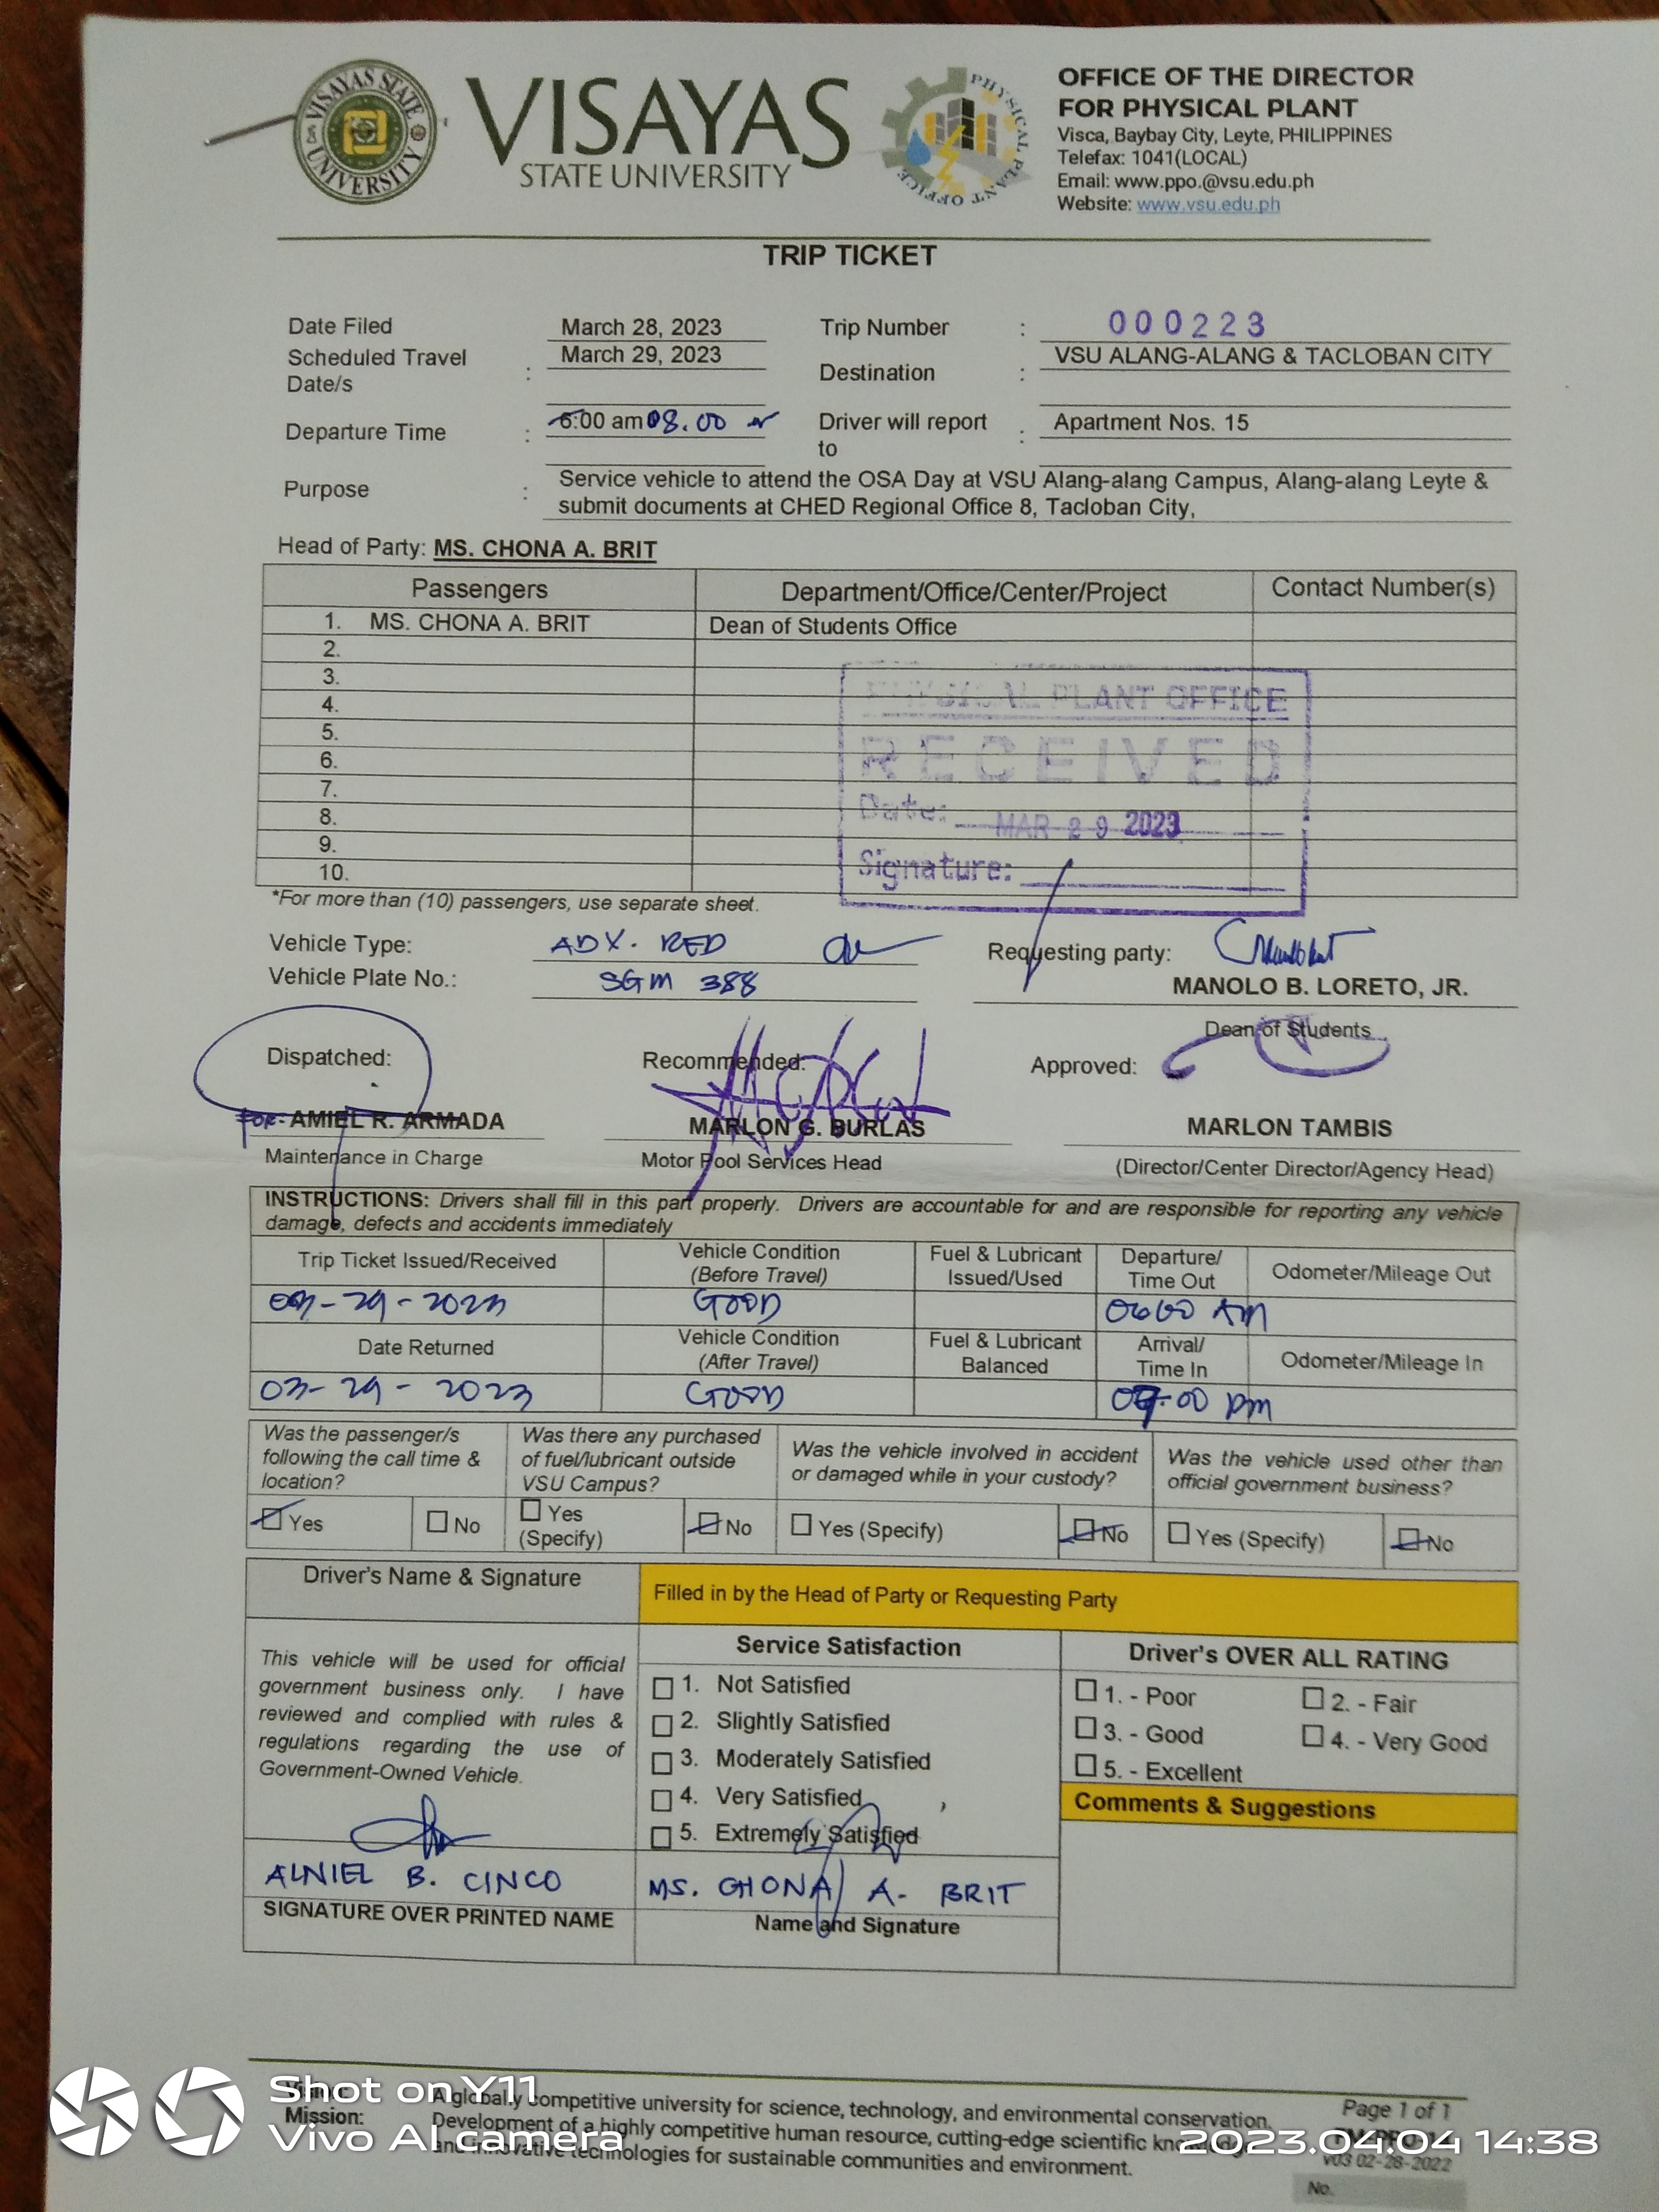 VISAYAS STATE UNIVERSITY
VISAYAS
STATE UNIVERSITY
PHYSICAL PLANT OFFICE
OFFICE OF THE DIRECTOR
FOR PHYSICAL PLANT
Visca, Baybay City, Leyte, PHILIPPINES
Telefax: 1041(LOCAL)
Email: www.ppo.@vsu.edu.ph
Website: www.vsu.edu.ph
TRIP TICKET
Date Filed March 28, 2023 Trip Number : 000223
Scheduled Travel Date/s : March 29, 2023 Destination : VSU ALANG-ALANG & TACLOBAN CITY
Departure Time : 6:00 am 08.00 Driver will report to : Apartment Nos. 15
Purpose : Service vehicle to attend the OSA Day at VSU Alang-alang Campus, Alang-alang Leyte &
submit documents at CHED Regional Office 8, Tacloban City,
Head of Party: MS. CHONA A. BRIT
Passengers Department/Office/Center/Project Contact Number(s)
1. MS. CHONA A. BRIT Dean of Students Office
2.
3.
4.
5.
6.
7.
8.
9.
10.
PHYSICAL PLANT OFFICE
RECEIVED
Date: MAR 29 2023
Signature:
*For more than (10) passengers, use separate sheet.
Vehicle Type: ADX. RED Requesting party:
Vehicle Plate No.: SGM 388 MANOLO B. LORETO, JR.
Dean of Students
Dispatched: Recommended: Approved:
FOR: AMIEL R. ARMADA MARLON G. BURLAS MARLON TAMBIS
Maintenance in Charge Motor Pool Services Head (Director/Center Director/Agency Head)
INSTRUCTIONS: Drivers shall fill in this part properly. Drivers are accountable for and are responsible for reporting any vehicle
damage, defects and accidents immediately
Trip Ticket Issued/Received Vehicle Condition (Before Travel) Fuel & Lubricant Issued/Used Departure/ Time Out Odometer/Mileage Out
03-29-2023 GOOD 0600 AM
Date Returned Vehicle Condition (After Travel) Fuel & Lubricant Balanced Arrival/ Time In Odometer/Mileage In
03-29-2023 GOOD :00 pm
Was the passenger/s following the call time & location? Was there any purchased of fuel/lubricant outside VSU Campus? Was the vehicle involved in accident or damaged while in your custody? Was the vehicle used other than official government business?
Yes No Yes (Specify) No Yes (Specify) No Yes (Specify) No
Driver's Name & Signature Filled in by the Head of Party or Requesting Party
This vehicle will be used for official
government business only. I have
reviewed and complied with rules &
regulations regarding the use of
Government-Owned Vehicle.
ALNIEL B. CINCO
SIGNATURE OVER PRINTED NAME
Service Satisfaction
1. Not Satisfied
2. Slightly Satisfied
3. Moderately Satisfied
4. Very Satisfied
5. Extremely Satisfied
MS. CHONA A. BRIT
Name and Signature
Driver's OVER ALL RATING
1. - Poor 2. - Fair
3. - Good 4. - Very Good
5. - Excellent
Comments & Suggestions
A globally competitive university for science, technology, and environmental conservation.
Mission: Development of a highly competitive human resource, cutting-edge scientific knowledge
and innovative technologies for sustainable communities and environment.
Page 1 of 1
v03 02-28-2022
No.
Shot on Y11
Vivo AI camera
2023.04.04 14:38